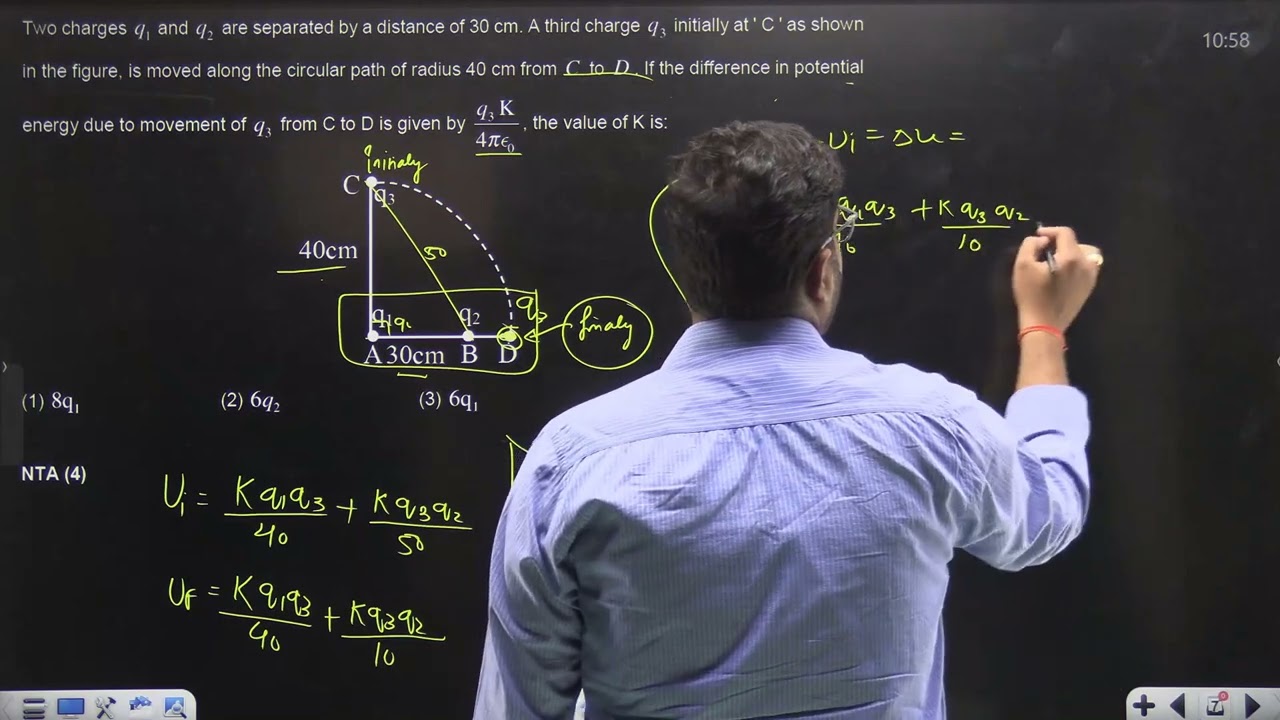 Two charges q₁ and q₂ are separated by a distance of 30 cm. A third charge q₃ initially at ' C ' as shown
10:58
in the figure, is moved along the circular path of radius 40 cm from C to D. If the difference in potential
energy due to movement of q₃ from C to D is given by q₃ K / 4πϵ₀, the value of K is:
Uᵢ = Δu =
initialy
C
q₃
q₁q₃ / + K q₃ q₂ / 10
40cm
50
q₁
q₂
q₃
finaly
A 30cm B D
(1) 8q₁ (2) 6q₂ (3) 6q₁
NTA (4)
Uᵢ = K q₁q₃ / 40 + K q₃q₂ / 50
U_f = K q₁q₃ / 40 + K q₃q₂ / 10
7